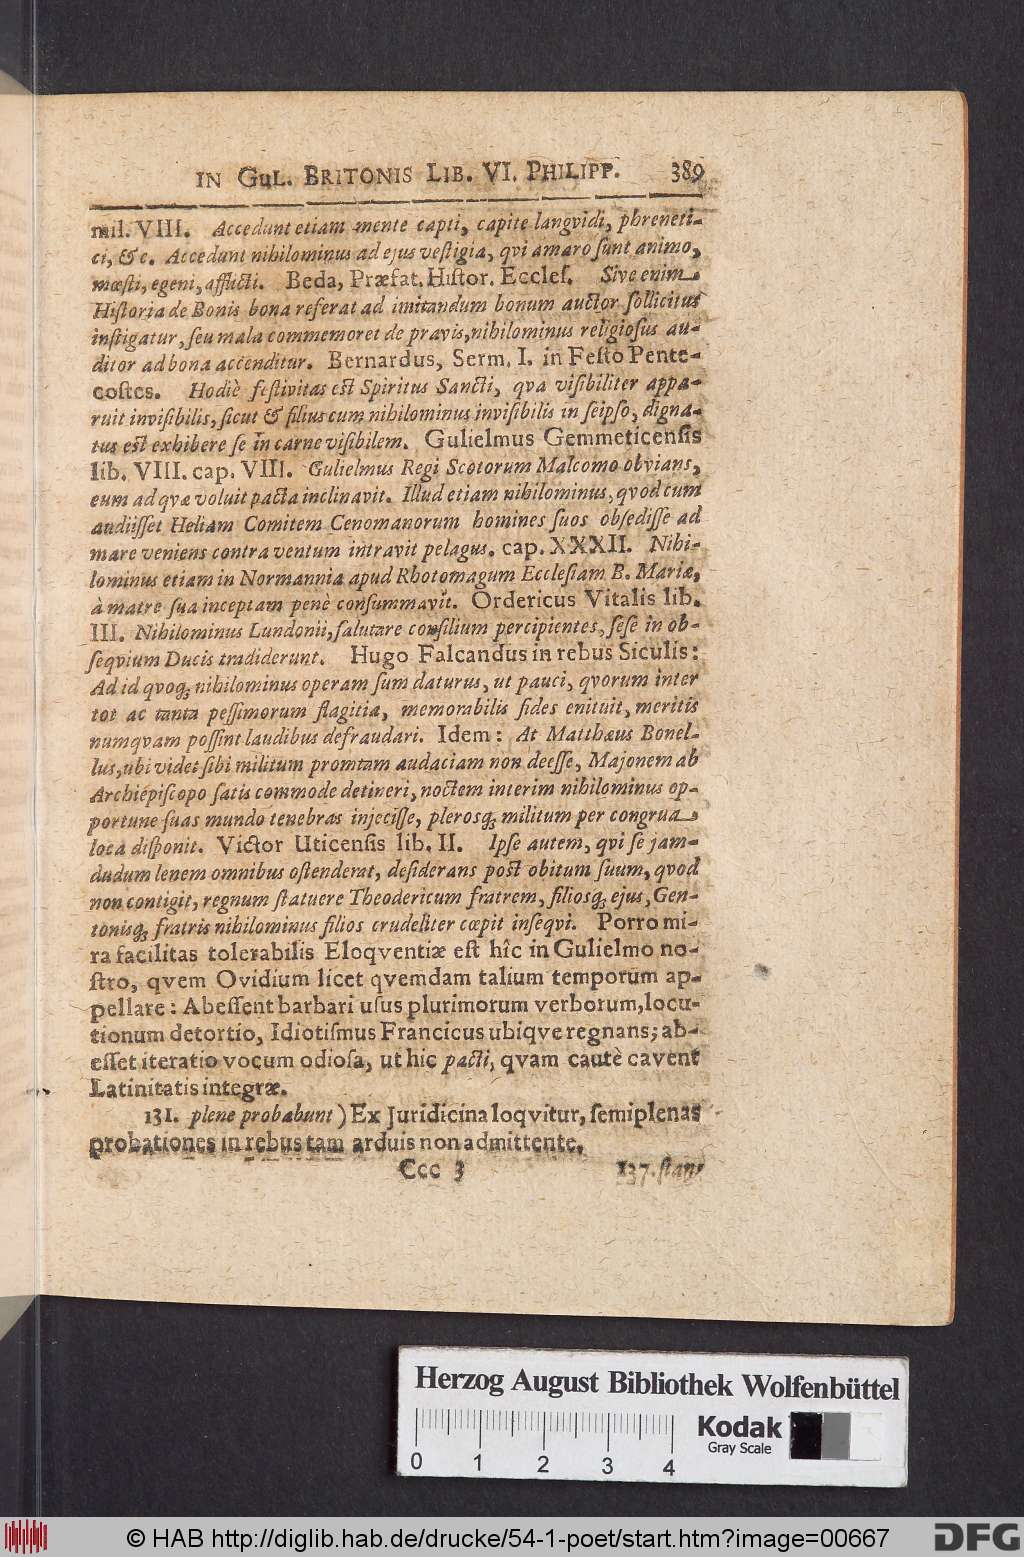 IN GUL. BRITONIS LIB. VI. PHILIPP. 389
mil. VIII. Accedunt etiam mente capti, capite langvidi, phreneti-
ci, &c. Accedunt nihilominus ad ejus veſtigia, qvi amaro ſunt animo,
mœſti, egeni, afflicti. Beda, Præfat. Hiſtor. Eccleſ. Sive enim
Hiſtoria de Bonis bona referat ad imitandum bonum auctor ſollicitus
inſtigatur, ſeu mala commemoret de pravis, nihilominus religioſus au-
ditor ad bona accenditur. Bernardus, Serm. I. in Feſto Pente-
coſtes. Hodiè feſtivitas eſt Spiritus Sancti, qva viſibiliter appa-
ruit inviſibilis, ſicut & filius cum nihilominus inviſibilis in ſeipſo, digna-
tus eſt exhibere ſe in carne viſibilem. Gulielmus Gemmeticenſis
lib. VIII. cap. VIII. Gulielmus Regi Scotorum Malcomo obvians,
eum ad qvæ voluit pacta inclinavit. Illud etiam nihilominus, qvod cum
audiiſſet Heliam Comitem Cenomanorum homines ſuos obſediſſe ad
mare veniens contra ventum intravit pelagus. cap. XXXII. Nihi-
lominus etiam in Normannia apud Rhotomagum Eccleſiam B. Mariæ,
à matre ſua inceptam penè conſummavit. Ordericus Vitalis lib.
III. Nihilominus Lundonii, ſalutare conſilium percipientes, ſeſe in ob-
ſeqvium Ducis tradiderunt. Hugo Falcandus in rebus Siculis:
Ad id qvoq; nihilominus operam ſum daturus, ut pauci, qvorum inter
tot ac tanta peſſimorum flagitia, memorabilis fides enituit, meritis
numqvam poſſint laudibus defraudari. Idem: At Matthæus Bonel-
lus, ubi videt ſibi militum promtam audaciam non deeſſe, Majonem ab
Archiepiſcopo ſatis commode detineri, noctem interim nihilominus op-
portune ſuas mundo tenebras injeciſſe, plerosq; militum per congrua
loca diſponit. Victor Uticenſis lib. II. Ipſe autem, qvi ſe jam-
dudum lenem omnibus oſtenderat, deſiderans poſt obitum ſuum, qvod
non contigit, regnum ſtatuere Theodericum fratrem, filiosq; ejus, Gen-
tonisq; fratris nihilominus filios crudeliter cœpit inſeqvi. Porro mi-
ra facilitas tolerabilis Eloqventiæ eſt hîc in Gulielmo no-
ſtro, qvem Ovidium licet qvemdam talium temporum ap-
pellare: Abeſſent barbari uſus plurimorum verborum, locu-
tionum detortio, Idiotiſmus Francicus ubiqve regnans; ab-
eſſet iteratio vocum odioſa, ut hic pacti, qvam cautè cavent
Latinitatis integræ.
131. plene probabunt) Ex Juridicina loqvitur, ſemiplenas
probationes in rebus tam arduis non admittente.
Ccc 3 137. ſtan-
Herzog August Bibliothek Wolfenbüttel
Kodak
Gray Scale
0 1 2 3 4
© HAB http://diglib.hab.de/drucke/54-1-poet/start.htm?image=00667
DFG